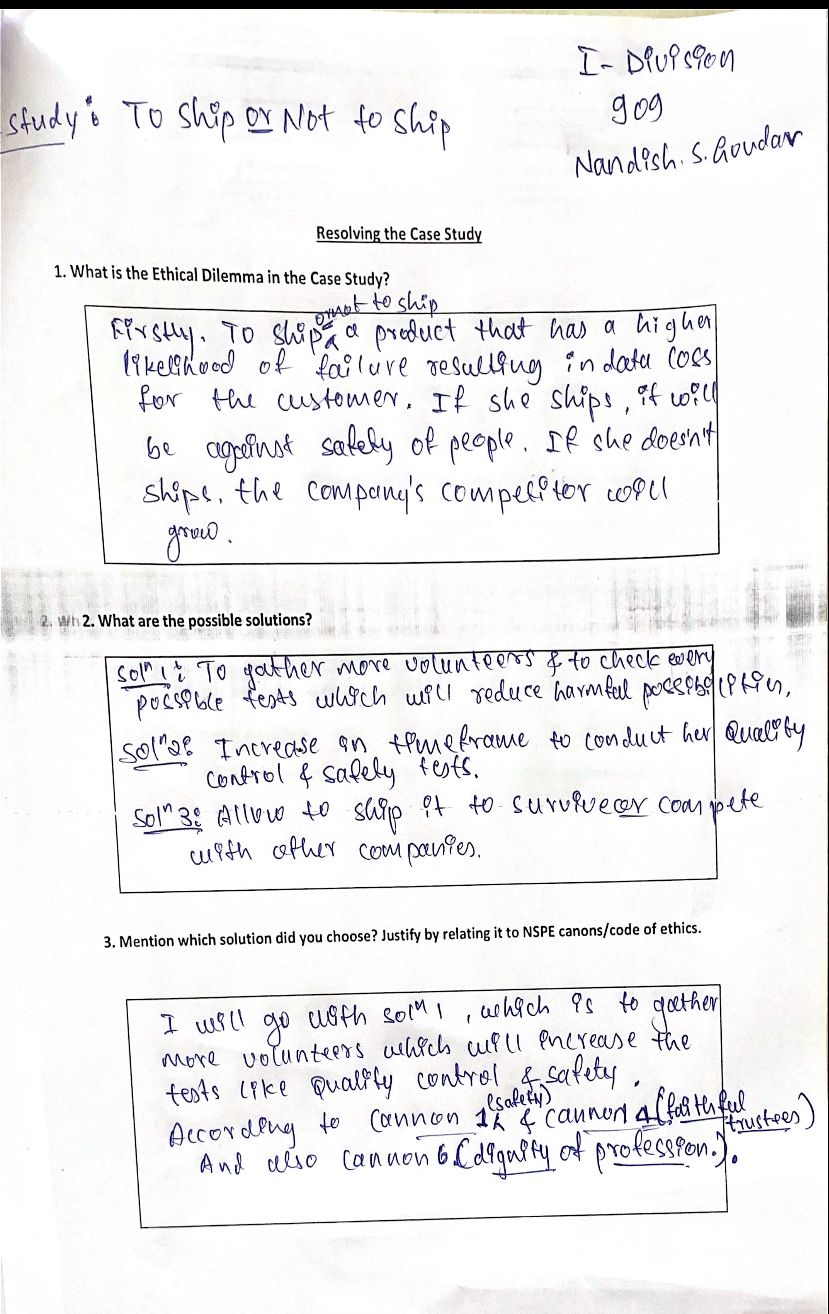 I - Division
909
Nandish. S. Goudar
study : To Ship or Not to Ship
Resolving the Case Study
1. What is the Ethical Dilemma in the Case Study?
or not to ship
Firstly, To Ship a product that has a higher
likelihood of failure resulting in data loss
for the customer. If she ships, it will
be against safety of people. If she doesn't
ships, the company's competitor will
grow.
2. Wh 2. What are the possible solutions?
Solⁿ 1: To gather more volunteers & to check every
possible tests which will reduce harmful possibilities.
Solⁿ 2: Increase in timeframe to conduct her Quality
control & safety tests.
Solⁿ 3: Allow to ship it to survive or compete
with other companies.
3. Mention which solution did you choose? Justify by relating it to NSPE canons/code of ethics.
I will go with solⁿ 1, which is to gather
more volunteers which will increase the
tests like Quality control & safety.
According to Cannon 1 (safety) & cannon 4 (faithful trustees)
And also Cannon 6 (dignity of profession.).